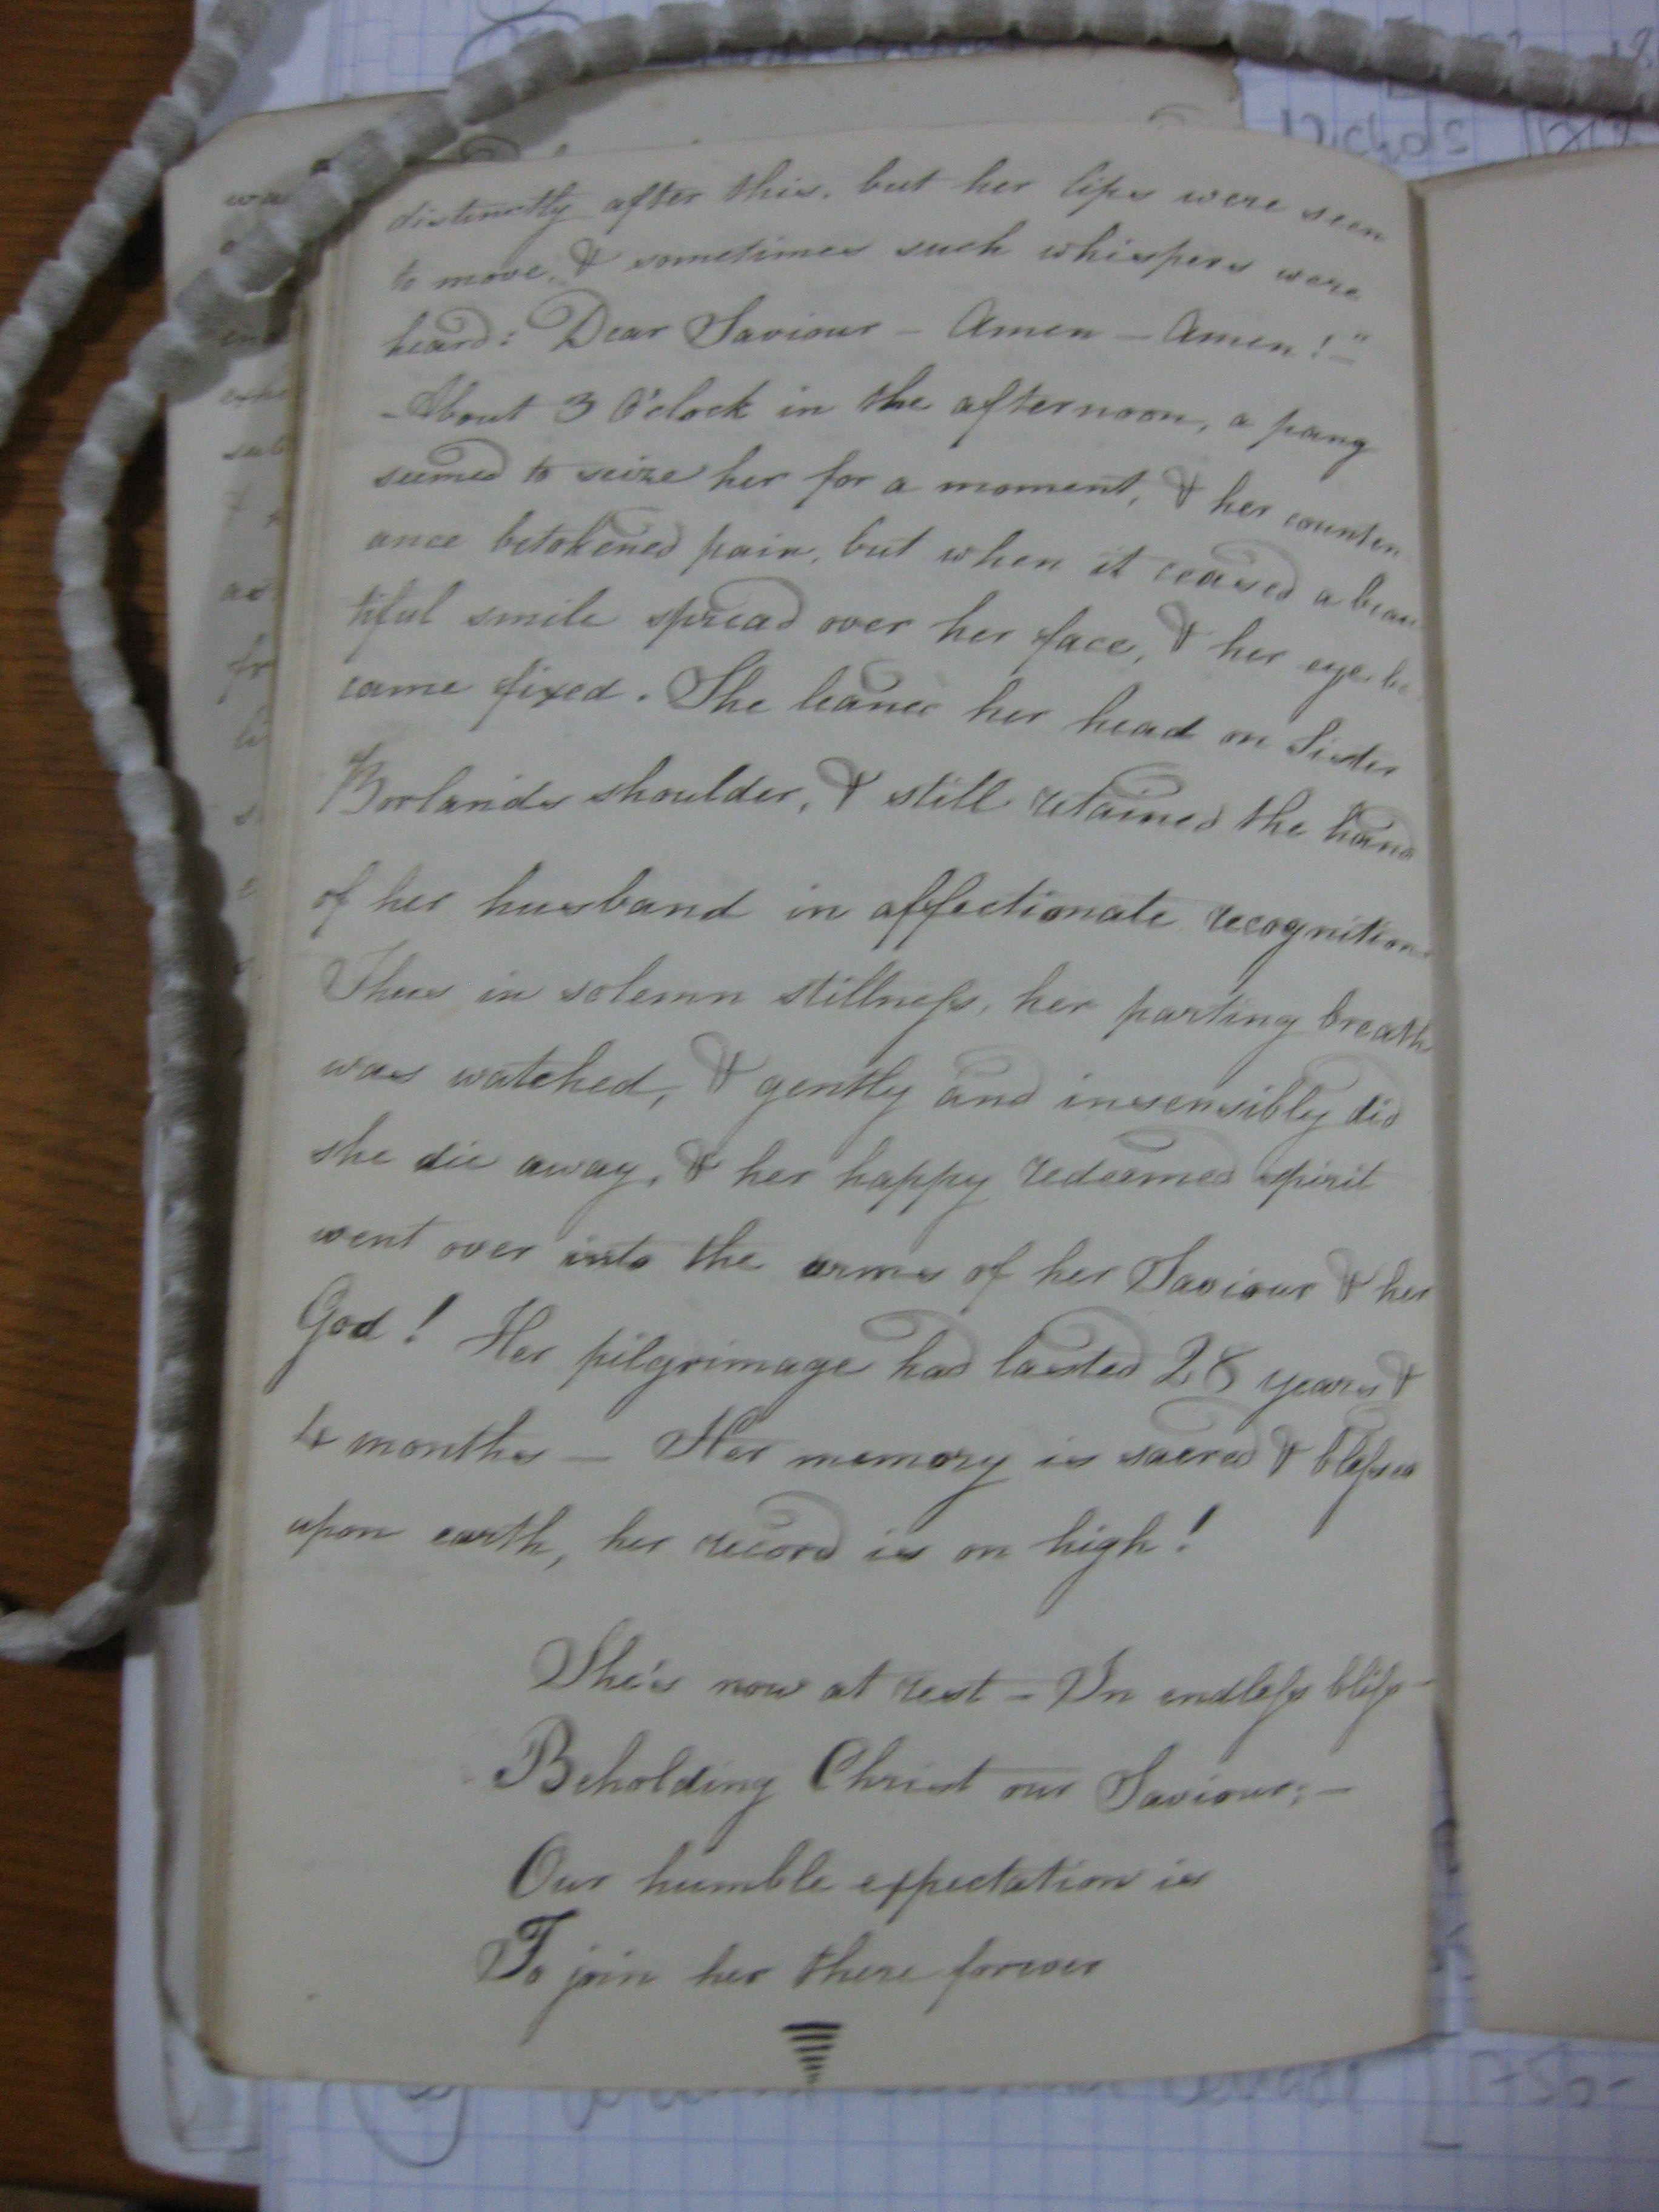 distinctly after this, but her lips were seen
to move, & sometimes such whispers were
heard: "Dear Saviour – Amen – Amen!"–
–About 3 O'clock in the afternoon, a pang
seemed to seize her for a moment, & her counten
ance betokened pain, but when it ceased a beau
tiful smile spread over her face, & her eye be
came fixed. She leaned her head on Sister
Borlands shoulder, & still retained the hand
of her husband in affectionate recognition
Thus in solemn stillness, her parting breath
was watched, & gently and insensibly did
she die away, & her happy redeemed spirit
went over into the arms of her Saviour & her
God! Her pilgrimage had lasted 28 years &
4 months – Her memory is sacred & blessed
upon earth, her record is on high!
She's now at rest – In endless bliss –
Beholding Christ our Saviour; –
Our humble expectation is
To join her there forever